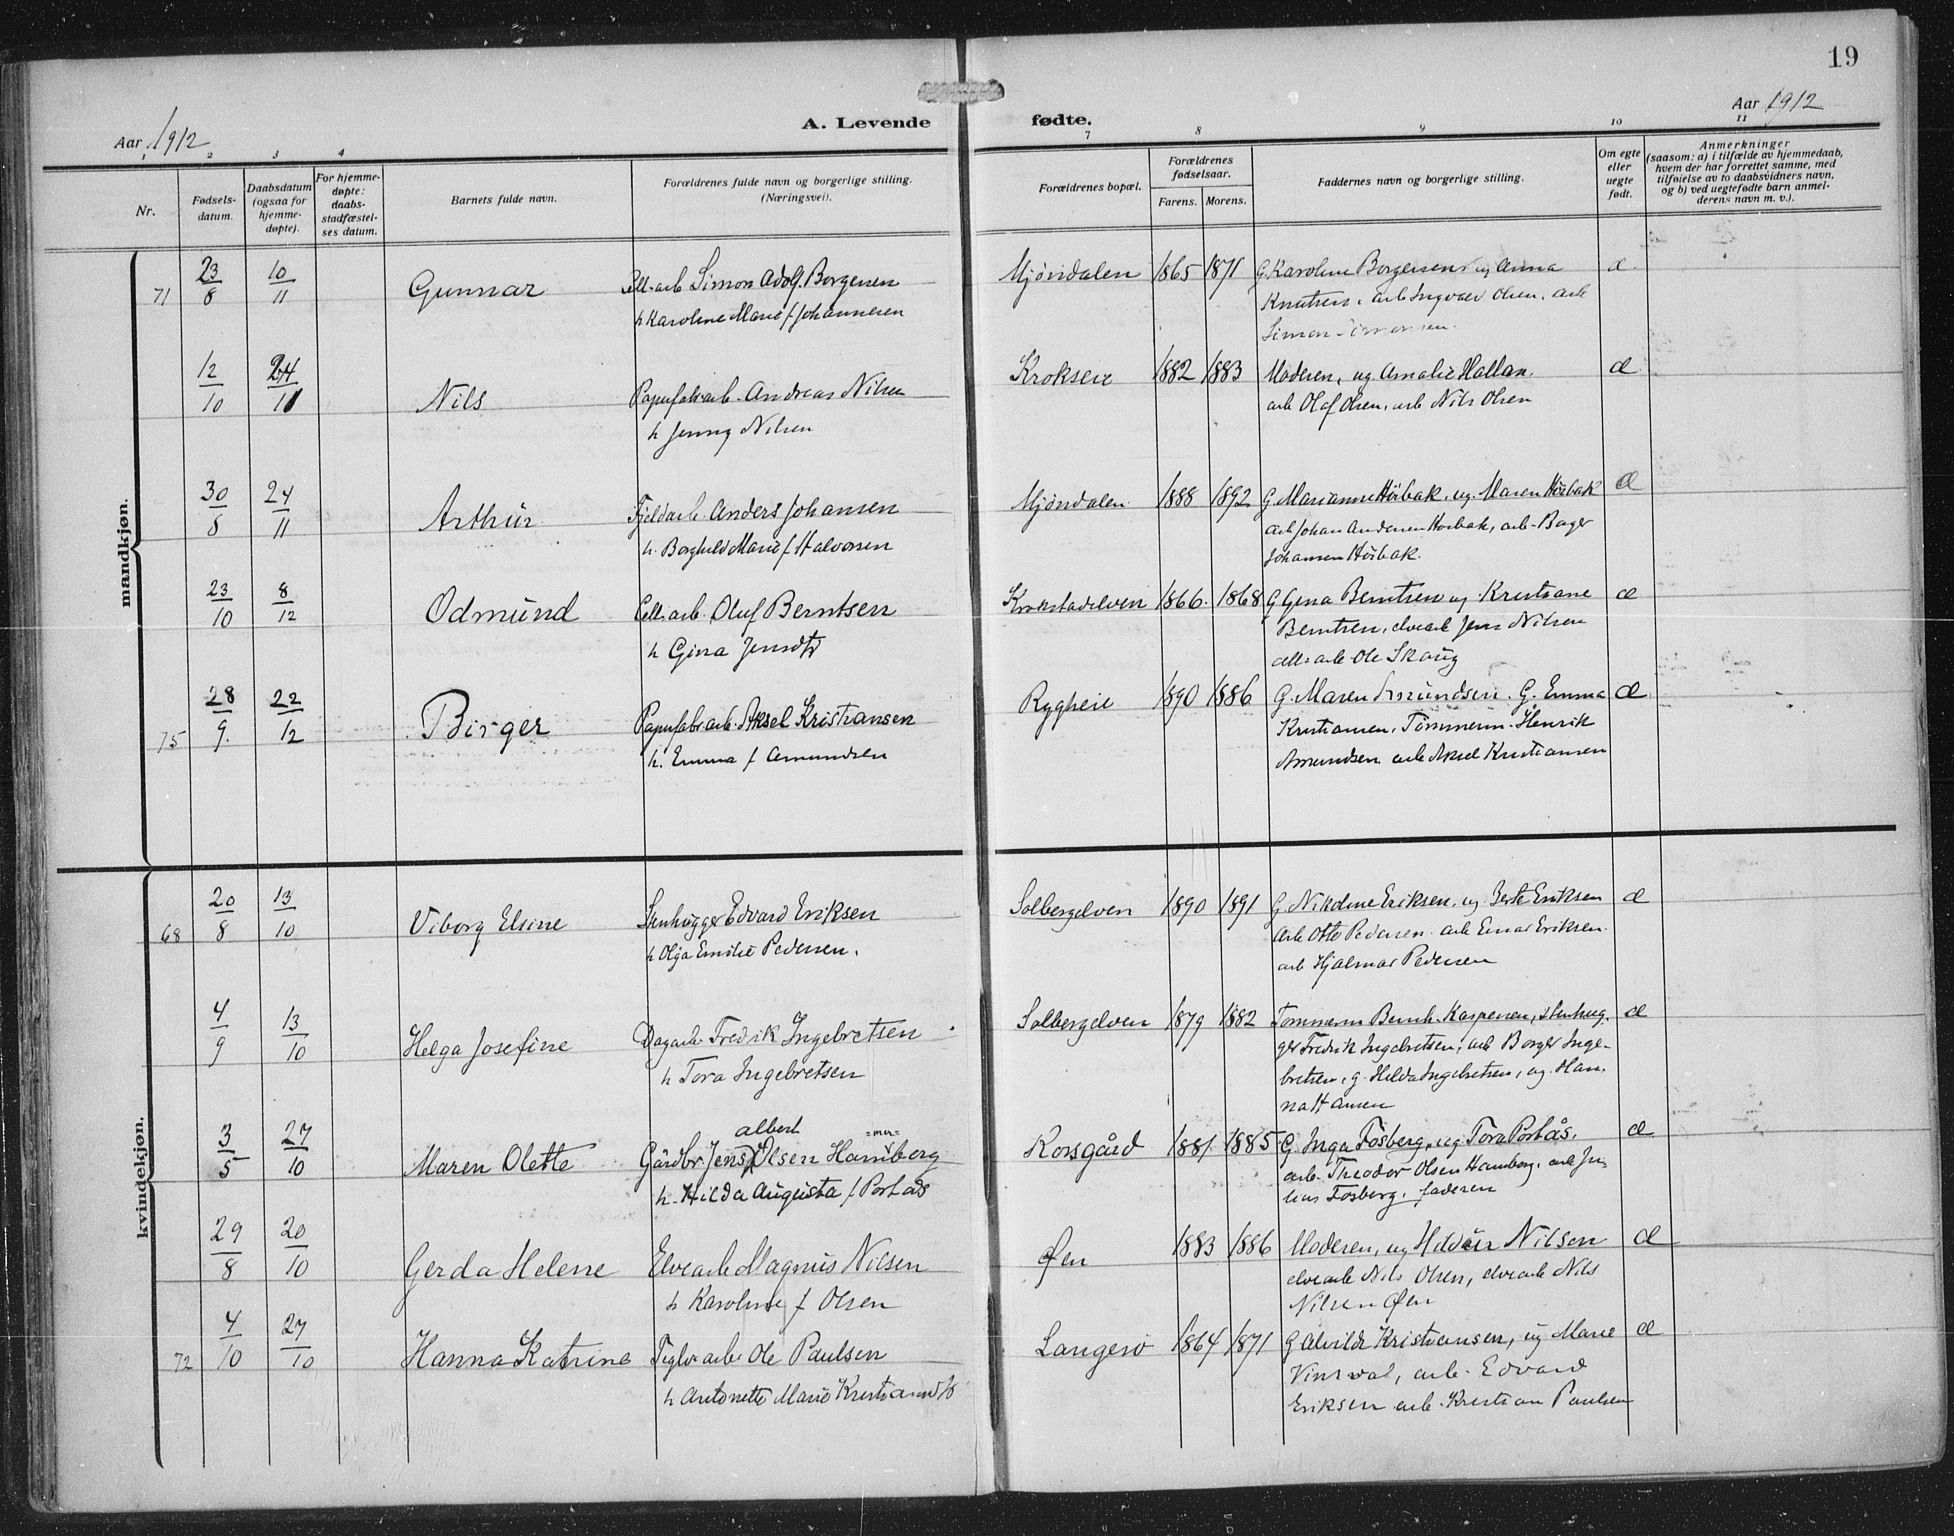 19
Aar 1912
A. Levende fødte.
Aar 1912
1 2 3 4 7 8 9 10 11
Nr.
Fødsels-
datum.
Daabsdatum
(ogsaa for
hjemme-
døpte).
For hjemme-
døpte:
daabs-
stadfæstel-
ses datum.
Barnets fulde navn.
Forældrenes fulde navn og borgerlige stilling.
(Næringsvei).
Forældrenes bopæl.
Forældrenes
fødselsaar.
Farens. Morens.
Faddernes navn og borgerlige stilling.
Om egte
eller
uegte
født.
Anmerkninger
(saasom: a) i tilfælde av hjemmedaab,
hvem der har forrettet samme, med
tilføielse av to daabsvidners navn,
og b) ved uegtefødte barn anmel-
derens navn m. v.).
mandkjøn.
71 23/8 10/11 Gunnar Cell-arb Simon Adolf Borgersen
h Karoline Marie f Johannesen
Mjøndalen 1865 1871 G. Karoline Borgersen og Anna
Knutsen, arb Ingvald Olsen, arb
Simon
æ
12/10 24/11 Nils Papirfabarb. Andreas Nilsen
h Jenny Nilsen
Krokseie 1882 1883 Moderen, og Amalie Hallan.
arb Olaf Olsen, arb Nils Olsen
æ
30/8 24/11 Arthur Fjeldarb. Anders Johansen
h. Borghild Marie f. Halvorsen
Mjøndalen 1888 1892 G. Marianne Horbak, og Maren Horbak
arb Johan Andersen Horbak, arb. Borger
Johansen Horbak.
æ
23/10 8/12 Odmund Cell-arb. Oluf Berntsen
h Gina Jensdtr
Krokstadelven 1866. 1868 G Gina Berntsen og Kristiane
Berntsen, elvearb Jens Nilsen
cell-arb Ole Skaug
æ
75 28/9. 22/12 Birger Papirfabrarb. Aksel Kristiansen
h. Emma f Amundsen
Rygheie 1890 1886 G. Maren Amundsen. G. Emma
Kristiansen, Tømmerm. Henrik
Amundsen arb Aksel Kristiansen
æ
kvindekjøn.
68 20/8 13/10 Viborg Elsine Stenhugger Edvard Eriksen
h Olga Emilie Pedersen.
Solbergelven 1890 1891 G. Nikoline Eriksen, og Berte Eriksen
Arb Otto Pedersen. arb Einar Eriksen.
arb Hjalmar Pedersen
æ
4/9 13/10 Helga Josefine Dagarb Fredrik Ingebretsen
h Tora Ingebretsen
Solbergelven 1879 1882 Tømmerm Bernh. Kaspersen, stenhug-
ger Fredrik Ingebretsen, arb Borger Inge-
bretsen, g. Hilda Ingebretsen, og Han-
na Hansen
æ
3/5 27/10 Maren Olette Gårdbr Jens albert Olsen Hamborg =mer=
h. Hilda Augusta f Portås
Korsgård 1881 1885 G. Inga Fosberg, og Tora Portås,
arb. Theodor Olsen Hamborg, arb Ju-
lius Fosberg, faderen
æ
29/8 20/10 Gerda Helene Elvearb Magnus Nilsen
h Karoline f Olsen
Øen 1883 1886 Moderen, og Hildur Nilsen
elvearb Nils Olsen, elvearb Nils
Nilsen Øen
æ
72 4/10 27/10 Hanna Katrine Teglv.arb. Ole Paulsen
h Antonette Marie Kristiansdtr
Langesø 1864 1871 G Alvilde Kristiansen, og Marie
Vinsvol, arb. Edvard
Eriksen arb. Kristian Paulsen
æ